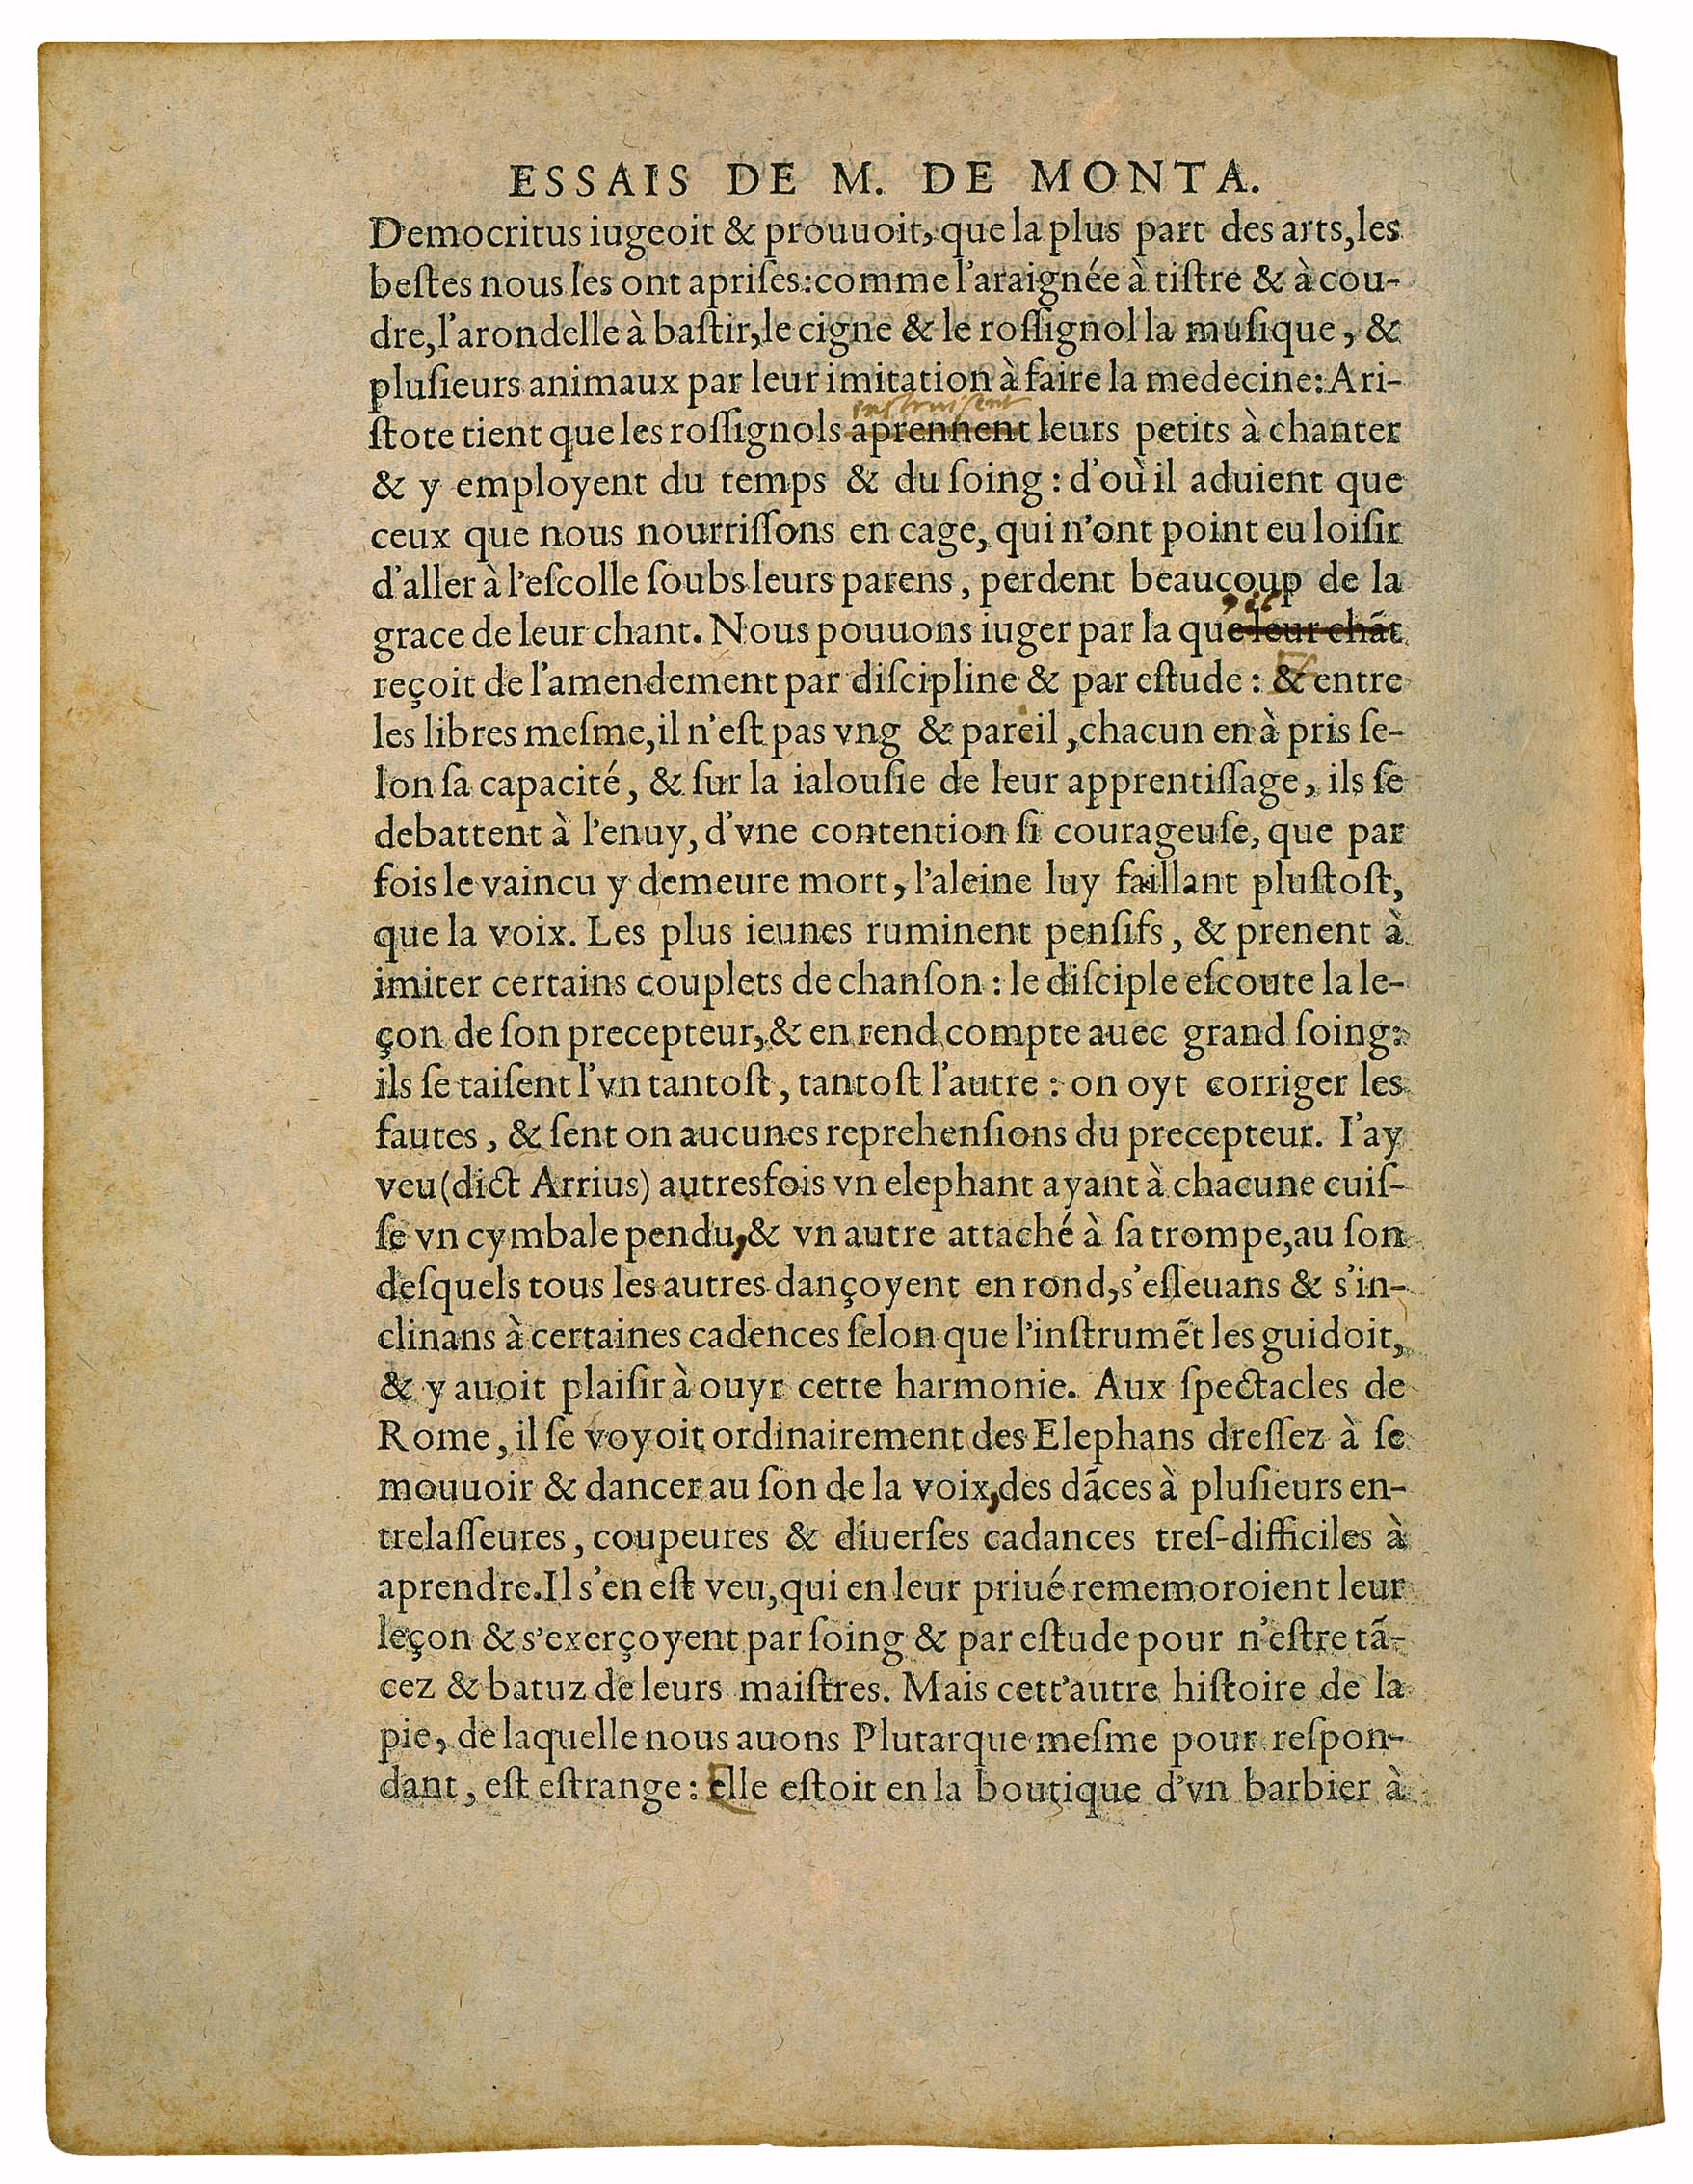 ESSAIS DE M. DE MONTA.
Democritus iugeoit & prouuoit, que la plus part des arts, les
beſtes nous les ont apriſes: comme l'araignée à tiſtre & à cou-
dre, l'arondelle à baſtir, le cigne & le roſſignol la muſique, &
pluſieurs animaux par leur imitation à faire la medecine: Ari-
instruisent
ſtote tient que les roſſignols aprennent leurs petits à chanter
& y employent du temps & du ſoing: d'où il aduient que
ceux que nous nourriſſons en cage, qui n'ont point eu loiſir
d'aller à l'eſcolle ſoubs leurs parens, perdent beaucoup de la
'il
grace de leur chant. Nous pouuons iuger par la que leur chãt
reçoit de l'amendement par diſcipline & par eſtude: & entre
les libres meſme, il n'eſt pas vng & pareil, chacun en à pris ſe-
lon ſa capacité, & ſur la ialouſie de leur apprentiſſage, ils ſe
debattent à l'enuy, d'vne contention ſi courageuſe, que par
fois le vaincu y demeure mort, l'aleine luy faillant pluſtoſt,
que la voix. Les plus ieunes ruminent penſifs, & prenent à
imiter certains couplets de chanſon: le diſciple eſcoute la le-
çon de ſon precepteur, & en rend compte auec grand ſoing:
ils ſe taiſent l'vn tantoſt, tantoſt l'autre: on oyt corriger les
fautes, & ſent on aucunes reprehenſions du precepteur. I'ay
veu (dict Arrius) autresfois vn elephant ayant à chacune cuiſ-
ſe vn cymbale pendu, & vn autre attaché à ſa trompe, au ſon
deſquels tous les autres dançoyent en rond, s'eſleuans & s'in-
clinans à certaines cadences ſelon que l'inſtrumẽt les guidoit,
& y auoit plaiſir à ouyr cette harmonie. Aux ſpectacles de
Rome, il ſe voyoit ordinairement des Elephans dreſſez à ſe
mouuoir & dancer au ſon de la voix, des dãces à pluſieurs en-
trelaſſeures, coupeures & diuerſes cadances treſ-difficiles à
aprendre. Il s'en eſt veu, qui en leur priué rememoroient leur
leçon & s'exerçoyent par ſoing & par eſtude pour n'eſtre tã-
cez & batuz de leurs maiſtres. Mais cett'autre hiſtoire de la
pie, de laquelle nous auons Plutarque meſme pour reſpon-
dant, eſt eſtrange: Elle eſtoit en la boutique d'vn barbier à